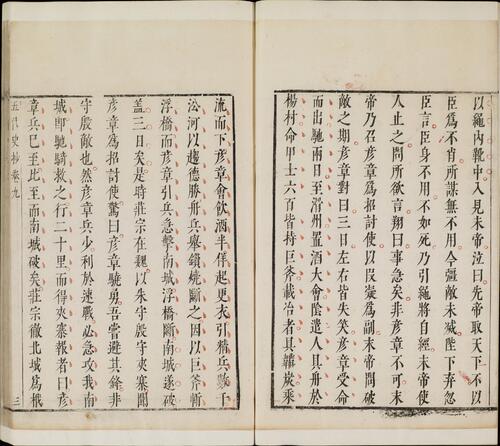 以繩內靴中入見末帝泣曰先帝取天下不以
臣爲不肖所謀無不用今彊敵未滅陛下棄忽
臣言臣身不用不如死乃引繩將自經末帝使
人止之問所欲言翔曰事急矣非彥章不可末
帝乃召彥章爲招討使以段凝爲副末帝問破
敵之期彥章對曰三日左右皆失笑彥章受命
而出馳兩日至滑州置酒大會陰遣人具舟於
楊村命甲士六百皆持巨斧載冶者具鞴炭乘
流而下彥章會飲酒半佯起更衣引精兵數千
沿河以趨德勝舟兵舉鎖燒斷之因以巨斧斬
浮橋而彥章引兵急擊南城浮橋斷南城遂破
蓋三日矣是時莊宗在魏以朱守殷守夾寨聞
彥章爲招討使驚曰彥章驍勇吾嘗避其鋒非
守殷敵也然彥章兵少利於速戰必急攻我南
城卽馳騎救之行二十里而得夾寨報者曰彥
章兵已至比至而南城破矣莊宗徹北城爲栰
五代史抄卷九
三